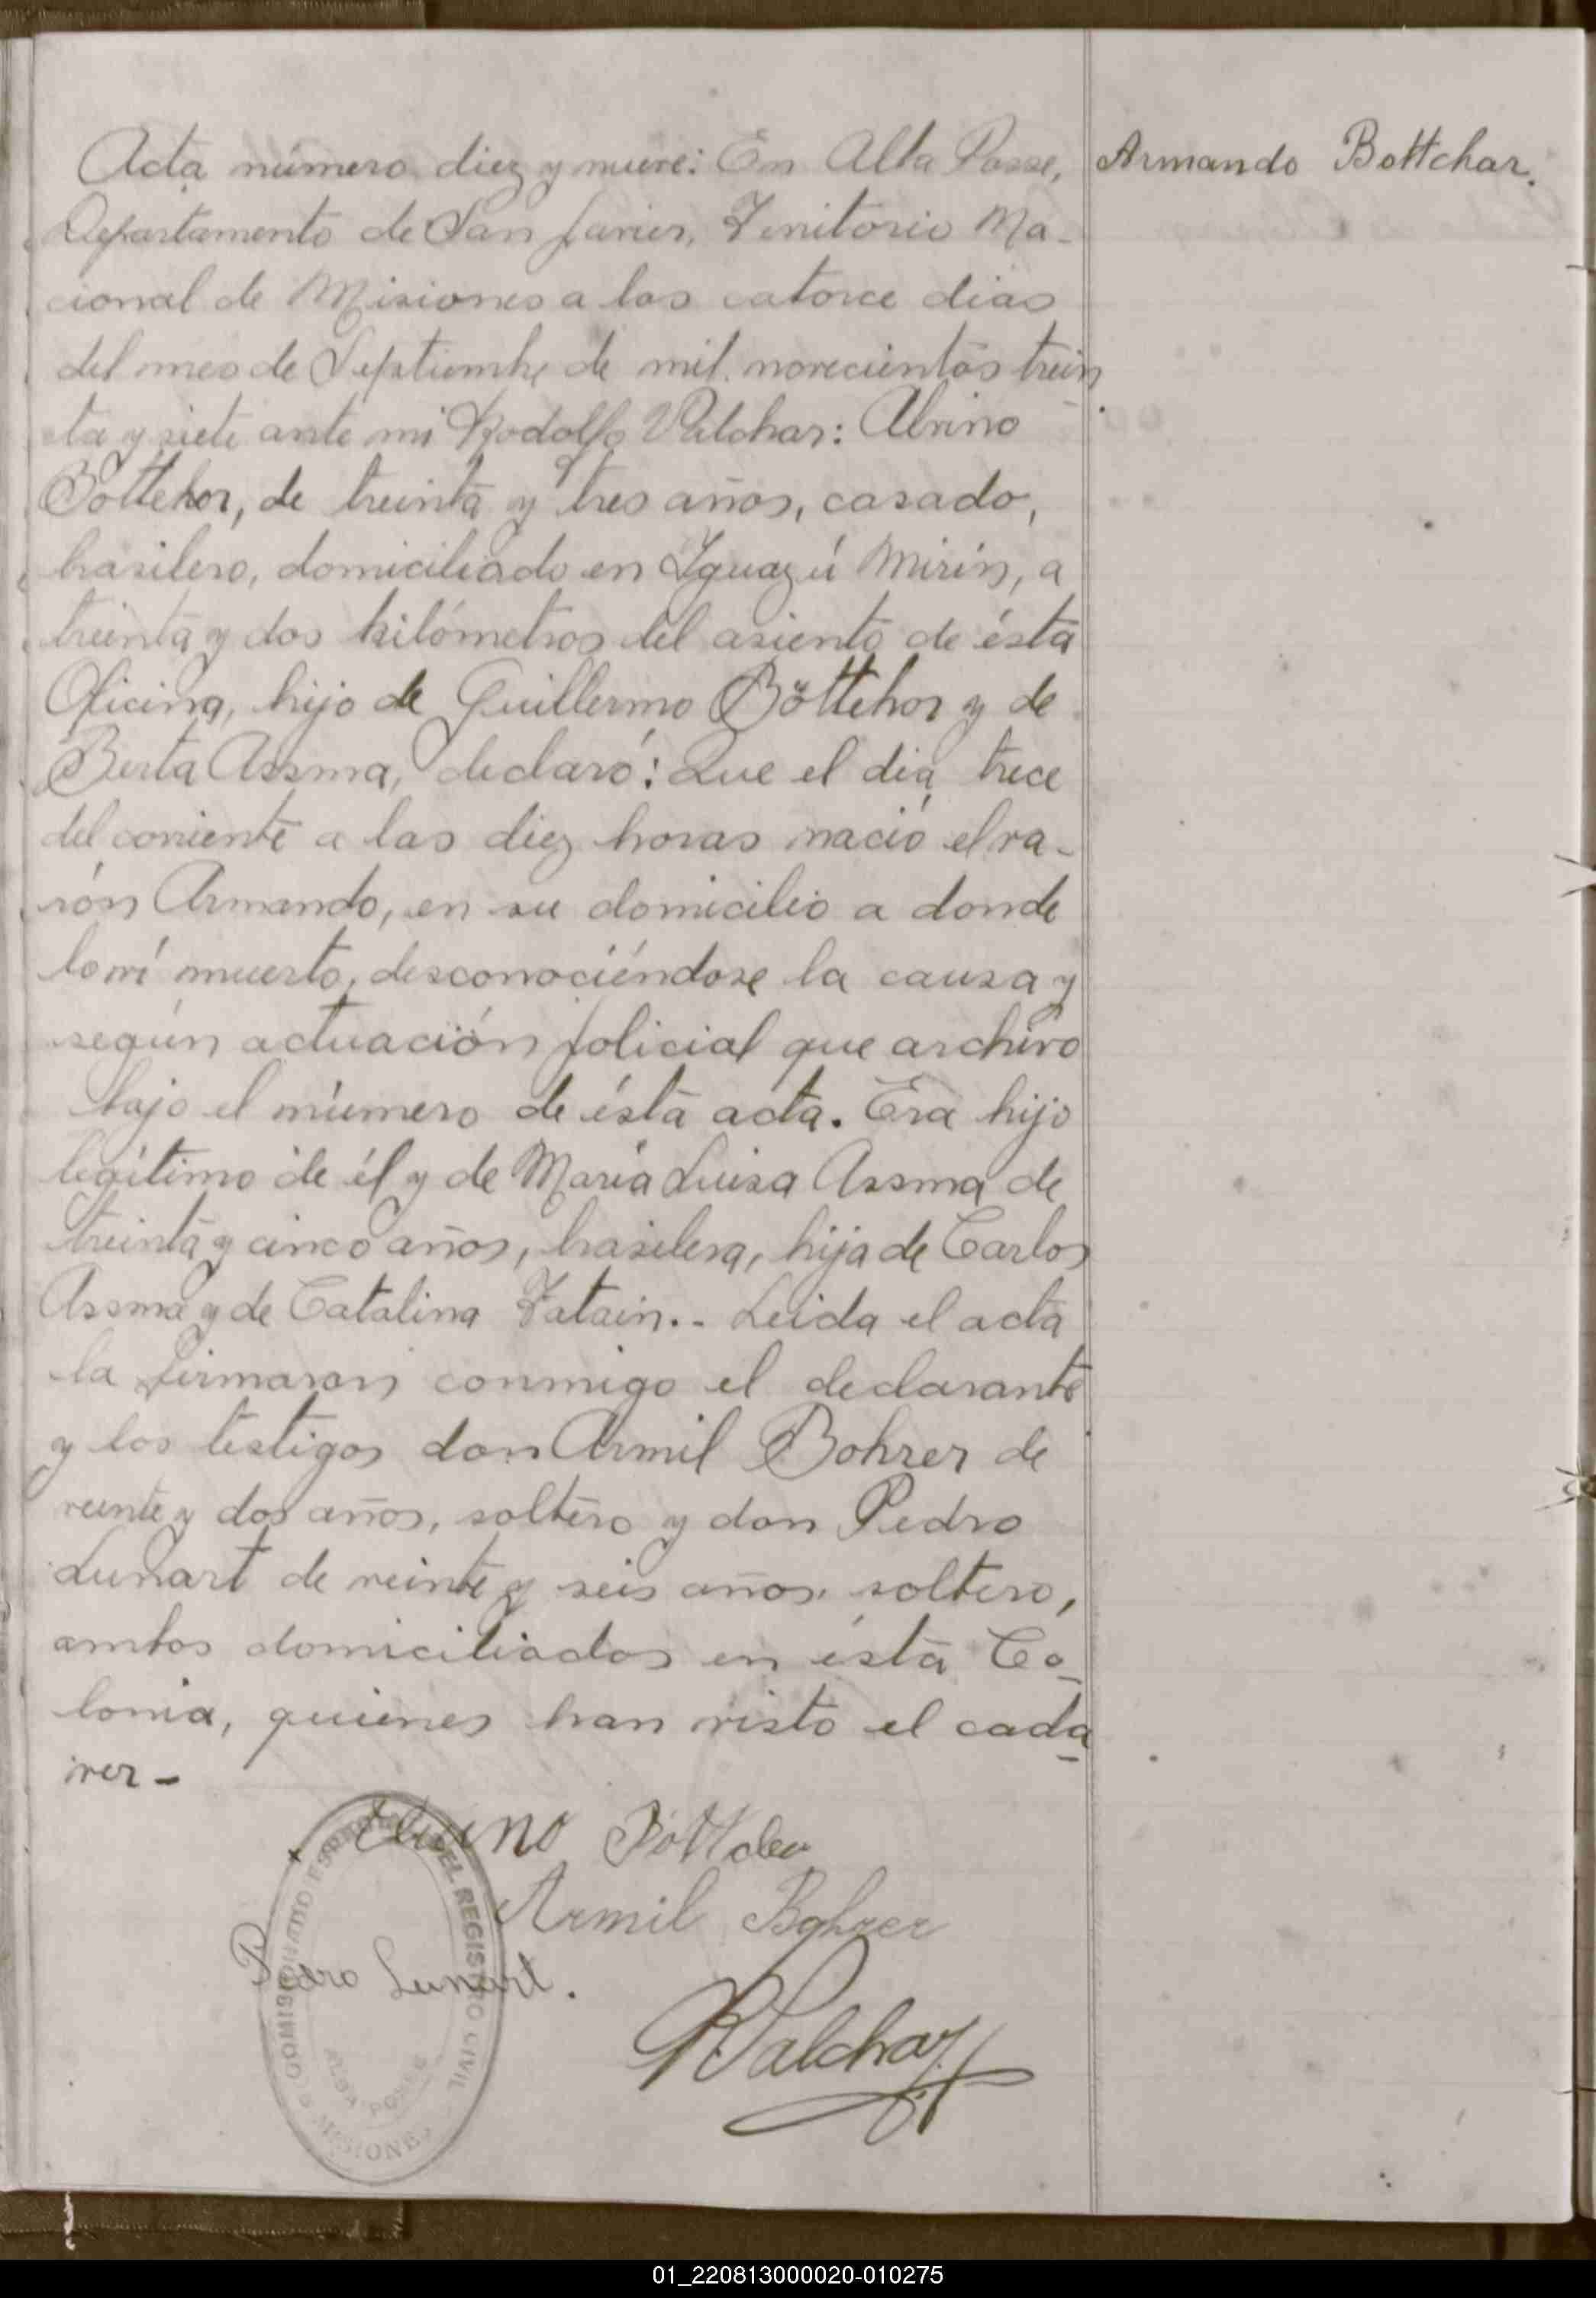 Acta número diez y nueve: En Alba Posse,
Armando Bottchar.
Departamento de San Javier, Territorio Na-
cional de Misiones a los catorce dias
del mes de Septiembre de mil novecientos trein
ta y siete ante mi Rodolfo Valchar: Alvino
Bottehor, de treinta y tres años, casado,
brasilero, domiciliado en Iguazú Mirin, a
treinta y dos kilómetros del asiento de ésta
Oficina, hijo de Guillermo Böttehor y de
Berta Assma, declaró: Que el dia trece
del corriente a las diez horas nació el va-
rón Armando, en su domicilio a donde
lo ví muerto, desconociéndose la causa y
según actuación policial que archivo
bajo el número de ésta acta. Era hijo
legítimo de él y de María Luisa Assma de
treinta y cinco años, brasilera, hija de Carlos
Assma y de Catalina Fatain.- Leida el acta
la firmaron conmigo el declarante
y los testigos don Armil Bohrer de
veinte y dos años, soltero y don Pedro
Lunart de veinte y seis años. soltero,
ambos domiciliados en ésta Co-
lonia, quienes han visto el cada
ver-
Böttcher
Armil Bohrer
Pedro Lunart.
RValchar
DEL REGISTRO CIVIL
ALBA POSSE
MISIONES
01_220813000020-010275